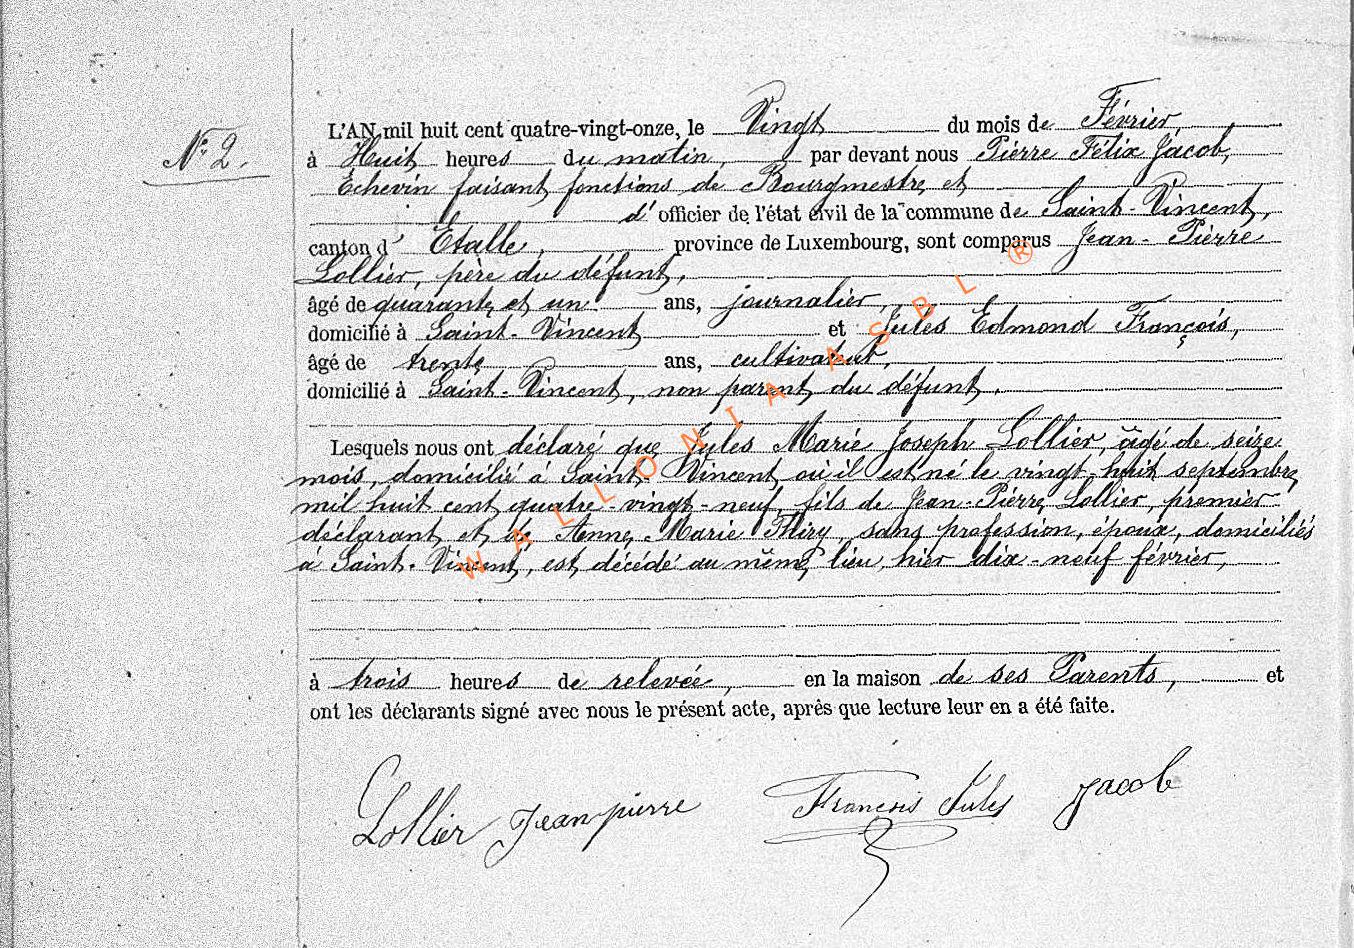 N° 2.
L'AN mil huit cent quatre-vingt-onze, le Vingt du mois de Février,
à Huit heures du matin, par devant nous Pierre Félix Jacob,
Echevin faisant fonctions de Bourgmestre et
d' officier de l'état civil de la commune de Saint-Vincent,
canton d' Étalle, province de Luxembourg, sont comparus Jean-Pierre
Lollier, père du défunt,
âgé de quarante et un ans, journalier,
domicilié à Saint-Vincent et Jules Edmond François,
âgé de trente ans, cultivateur,
domicilié à Saint-Vincent, non parent du défunt.
Lesquels nous ont déclaré que Jules Marie Joseph Lollier, âgé de seize
mois, domicilié à Saint-Vincent où il est né le vingt-huit septembre
mil huit cent quatre-vingt-neuf, fils de Jean-Pierre Lollier, premier
déclarant et de Anne Marie Thiry sans profession, époux, domiciliés
à Saint-Vincent, est décédé au même lieu, hier dix-neuf février,
à trois heures de relevée, en la maison de ses Parents, et
ont les déclarants signé avec nous le présent acte, après que lecture leur en a été faite.
Lollier Jean pierre François Jules Jacob
WALLONIA ASBL ®